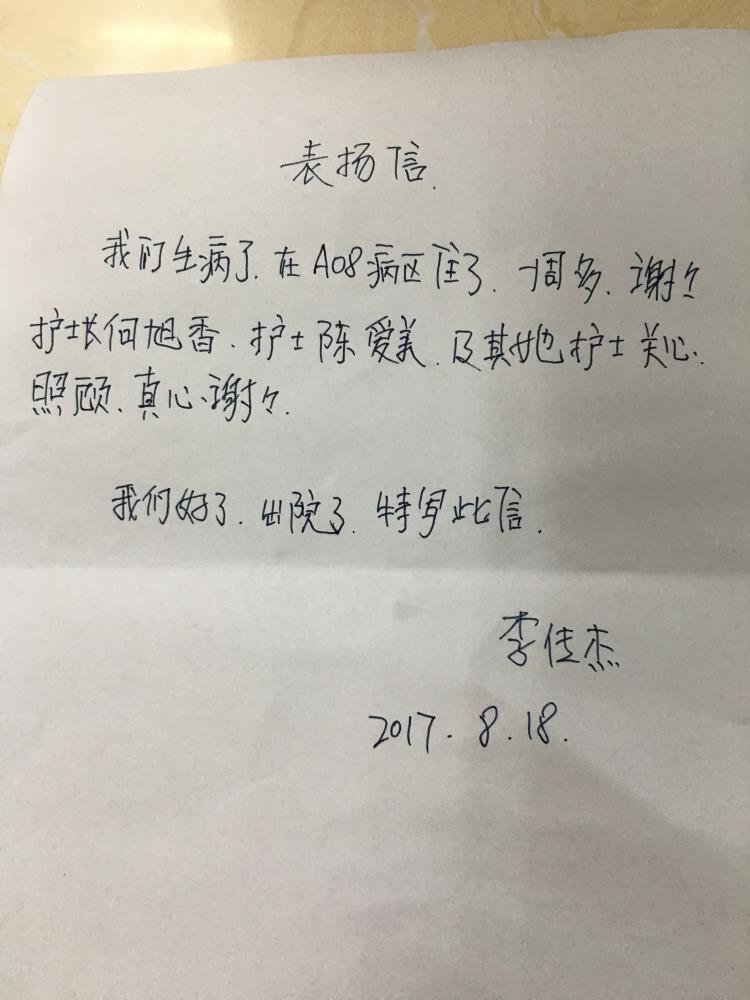 表扬信.
我们生病了.在A08病区住了.一周多.谢々
护士长何旭香.护士陈爱美.及其她护士关心.
照顾.真心谢々.
我们好了.出院了.特写此信.
李佳杰
2017.8.18.